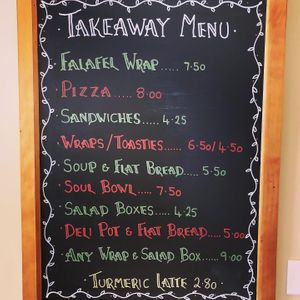 TAKEAWAY MENU
FALAFEL WRAP..... 7.50
PIZZA ..... 8.00
SANDWICHES..... 4.25
WRAPS/TOASTIES..... 6.50/4.50
SOUP & FLAT BREAD..... 5.50
SOUL BOWL..... 7.50
SALAD BOXES..... 4.25
DELI POT & FLAT BREAD..... 5.00
ANY WRAP & SALAD BOX..... 9.00
TURMERIC LATTE 2.80